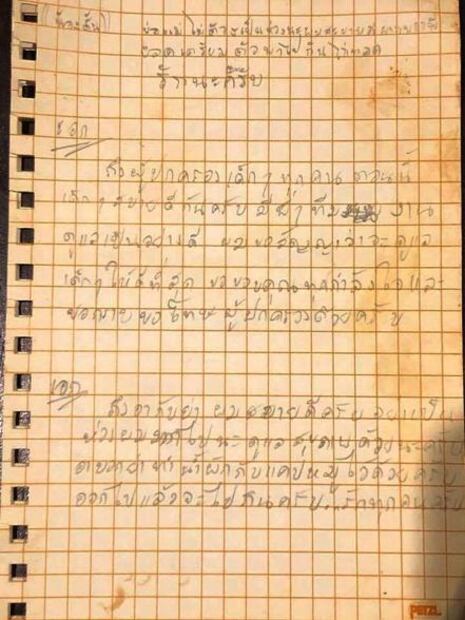 (น้องสั้น) พ่อแม่ไม่ต้องเป็นห่วงนะผมสบายดี
ยอดเตรียมตัวพาไปกินไก่ทอด
ร้านะครับ
เอก
ถึงผู้ปกครองเด็กๆทุกคน ตอนนี้
เด็กๆสบายดีกันครับ มีพี่ๆทีม งาน
ดูแลเป็นอย่างดี ผมขอสัญญาว่าจะดูแล
เด็กๆให้ดีที่สุด ขอขอบคุณทุกกำลังใจและ
ขอกราบขอโทษผู้ปกครองด้วยครับ
เอก
ถึงอากับย่า ผมสบายดีครับ อย่าเป็น
ห่วงผมมากไปนะ ดูแลสุขภาพด้วยนะครับ
ย่าทำน้ำผักกับแคปหมูไว้ด้วยครับ
ออกไปแล้วจะไปกินครับ รักทุกคนครับ
PETZL